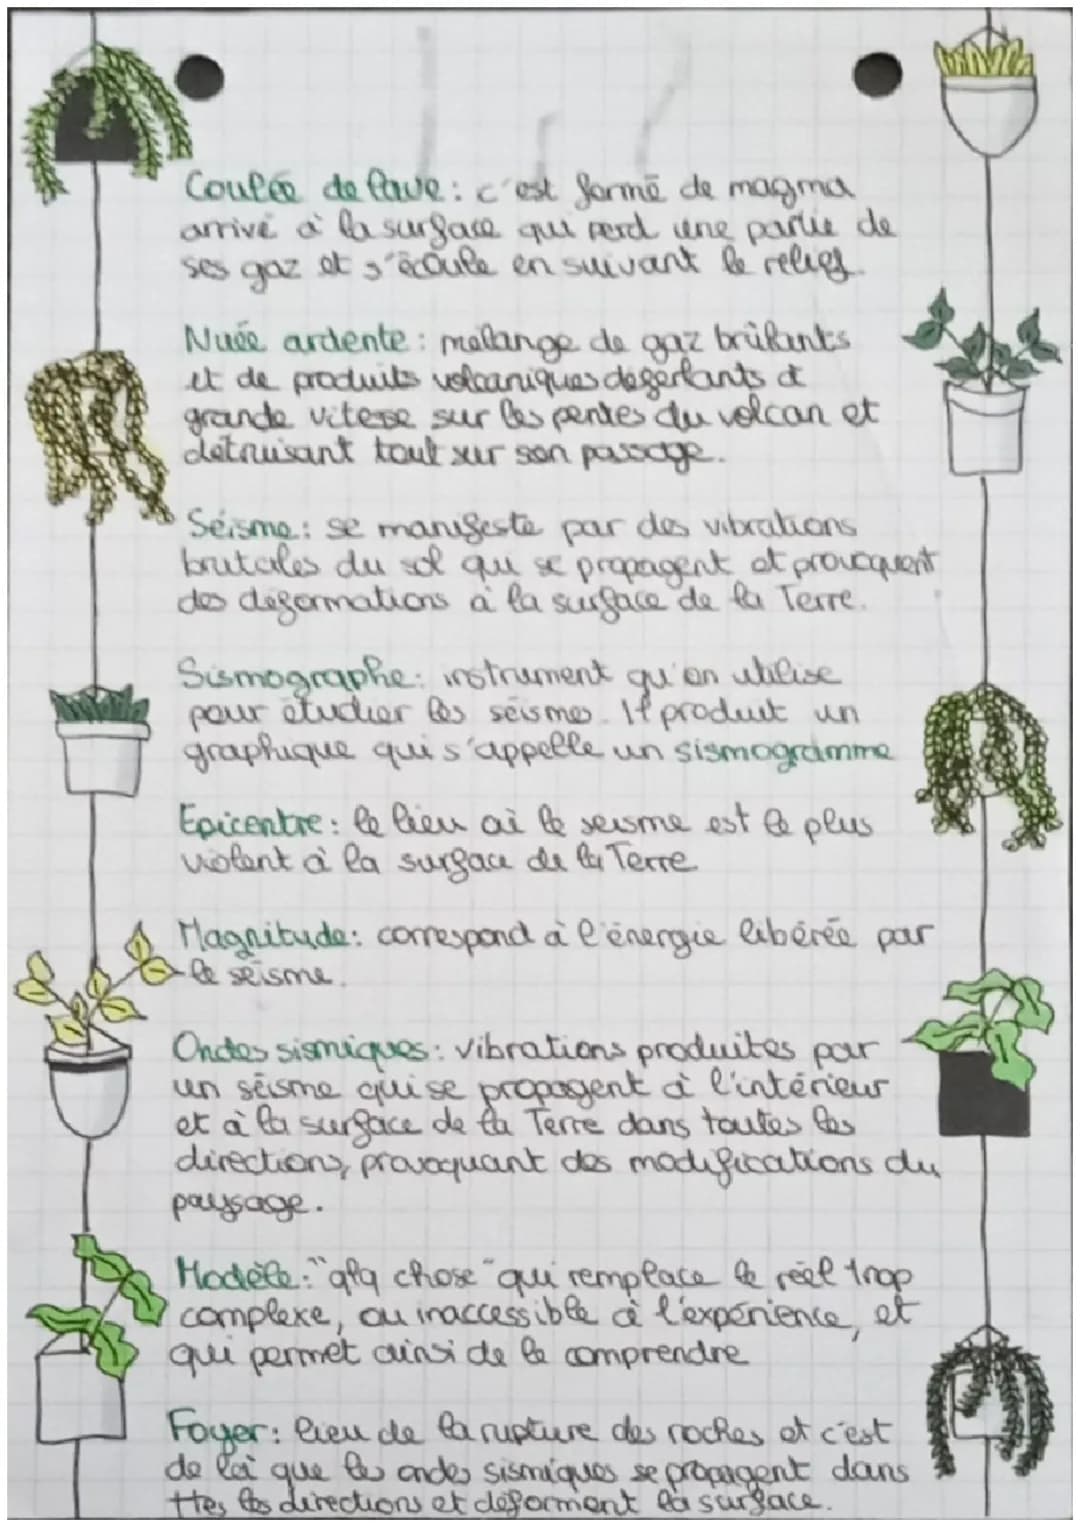 Coulée de lave : c'est formé de magma
arrivé à la surface qui perd une partie de
ses gaz et s'écoule en suivant le relief.
Nuée ardente : mélange de gaz brûlants
et de produits volcaniques déferlants à
grande vitesse sur les pentes du volcan et
détruisant tout sur son passage.
Séisme : se manifeste par des vibrations
brutales du sol qui se propagent et provoquent
des déformations à la surface de la Terre.
Sismographe : instrument qu'on utilise
pour étudier les séismes. Il produit un
graphique qui s'appelle un sismogramme
Epicentre : le lieu où le seisme est le plus
violent à la surface de la Terre
Magnitude : correspond à l'énergie libérée par
le séisme.
Ondes sismiques : vibrations produites par
un séisme qui se propagent à l'intérieur
et à la surface de la Terre dans toutes les
directions, provoquant des modifications du
paysage.
Modèle : "qlq chose" qui remplace le réel trop
complexe, ou inaccessible à l'expérience, et
qui permet ainsi de le comprendre
Foyer : lieu de la rupture des roches et c'est
de là que les ondes sismiques se propagent dans
ttes les directions et déforment la surface.